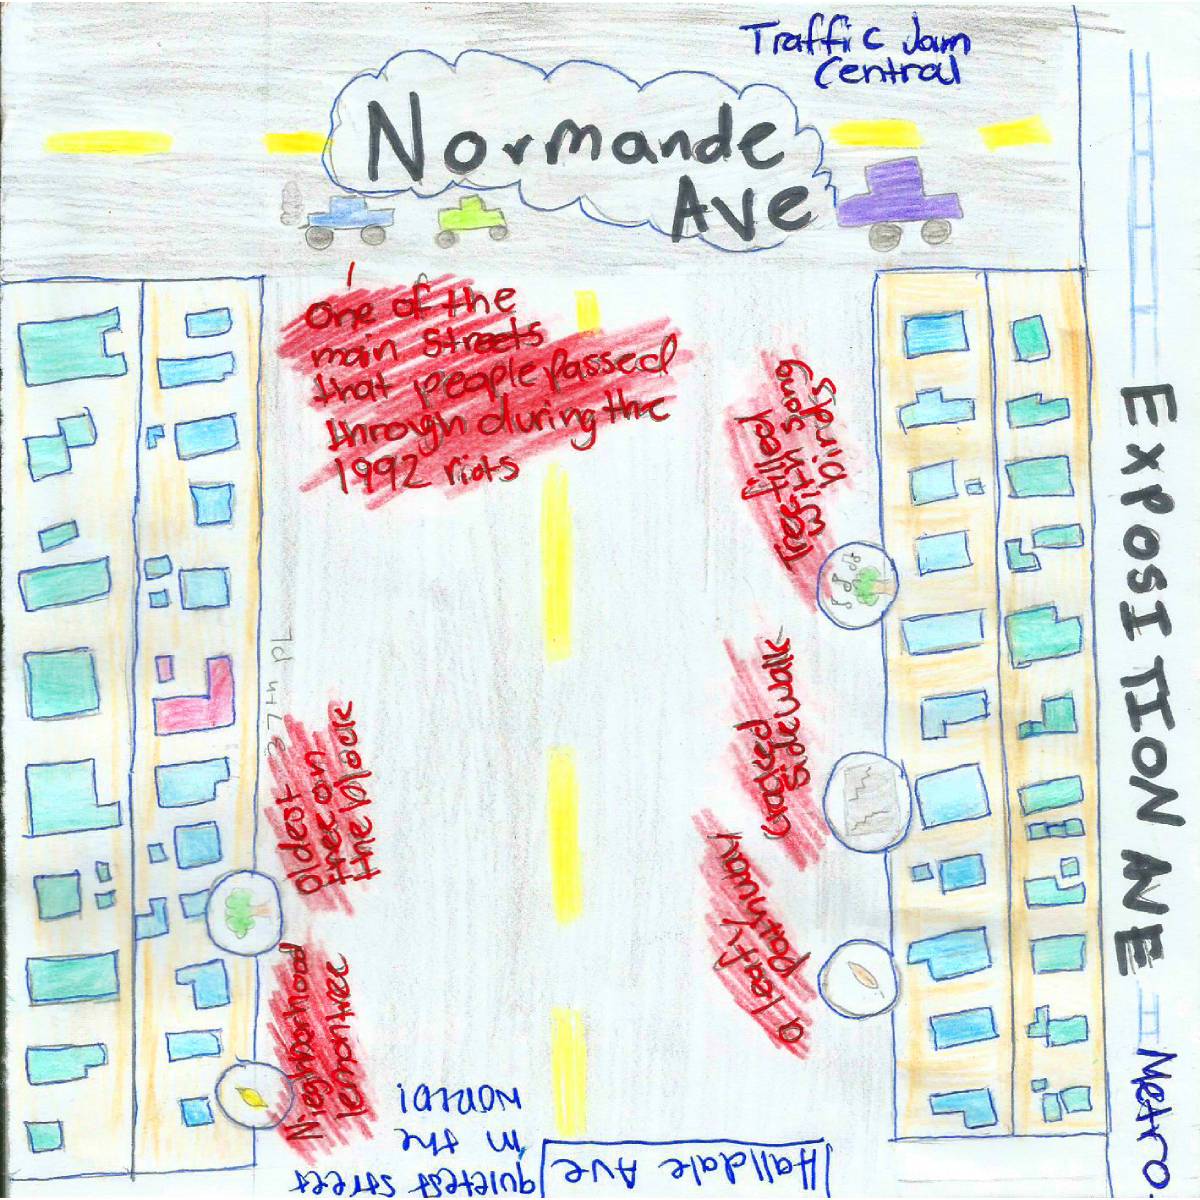 Traffic Jam
Central
Normande
Ave
One of the
main streets
that people passed
through during the
1992 riots
Tree filled
with song
birds
Cracked
Sidewalk
a leafy
pathway
37th PL
Oldest
tree on
the block
Nieghborhood
lemontree
Halldale Ave
quietest street
in the
WORLD!
EXPOSITION NE
Metro